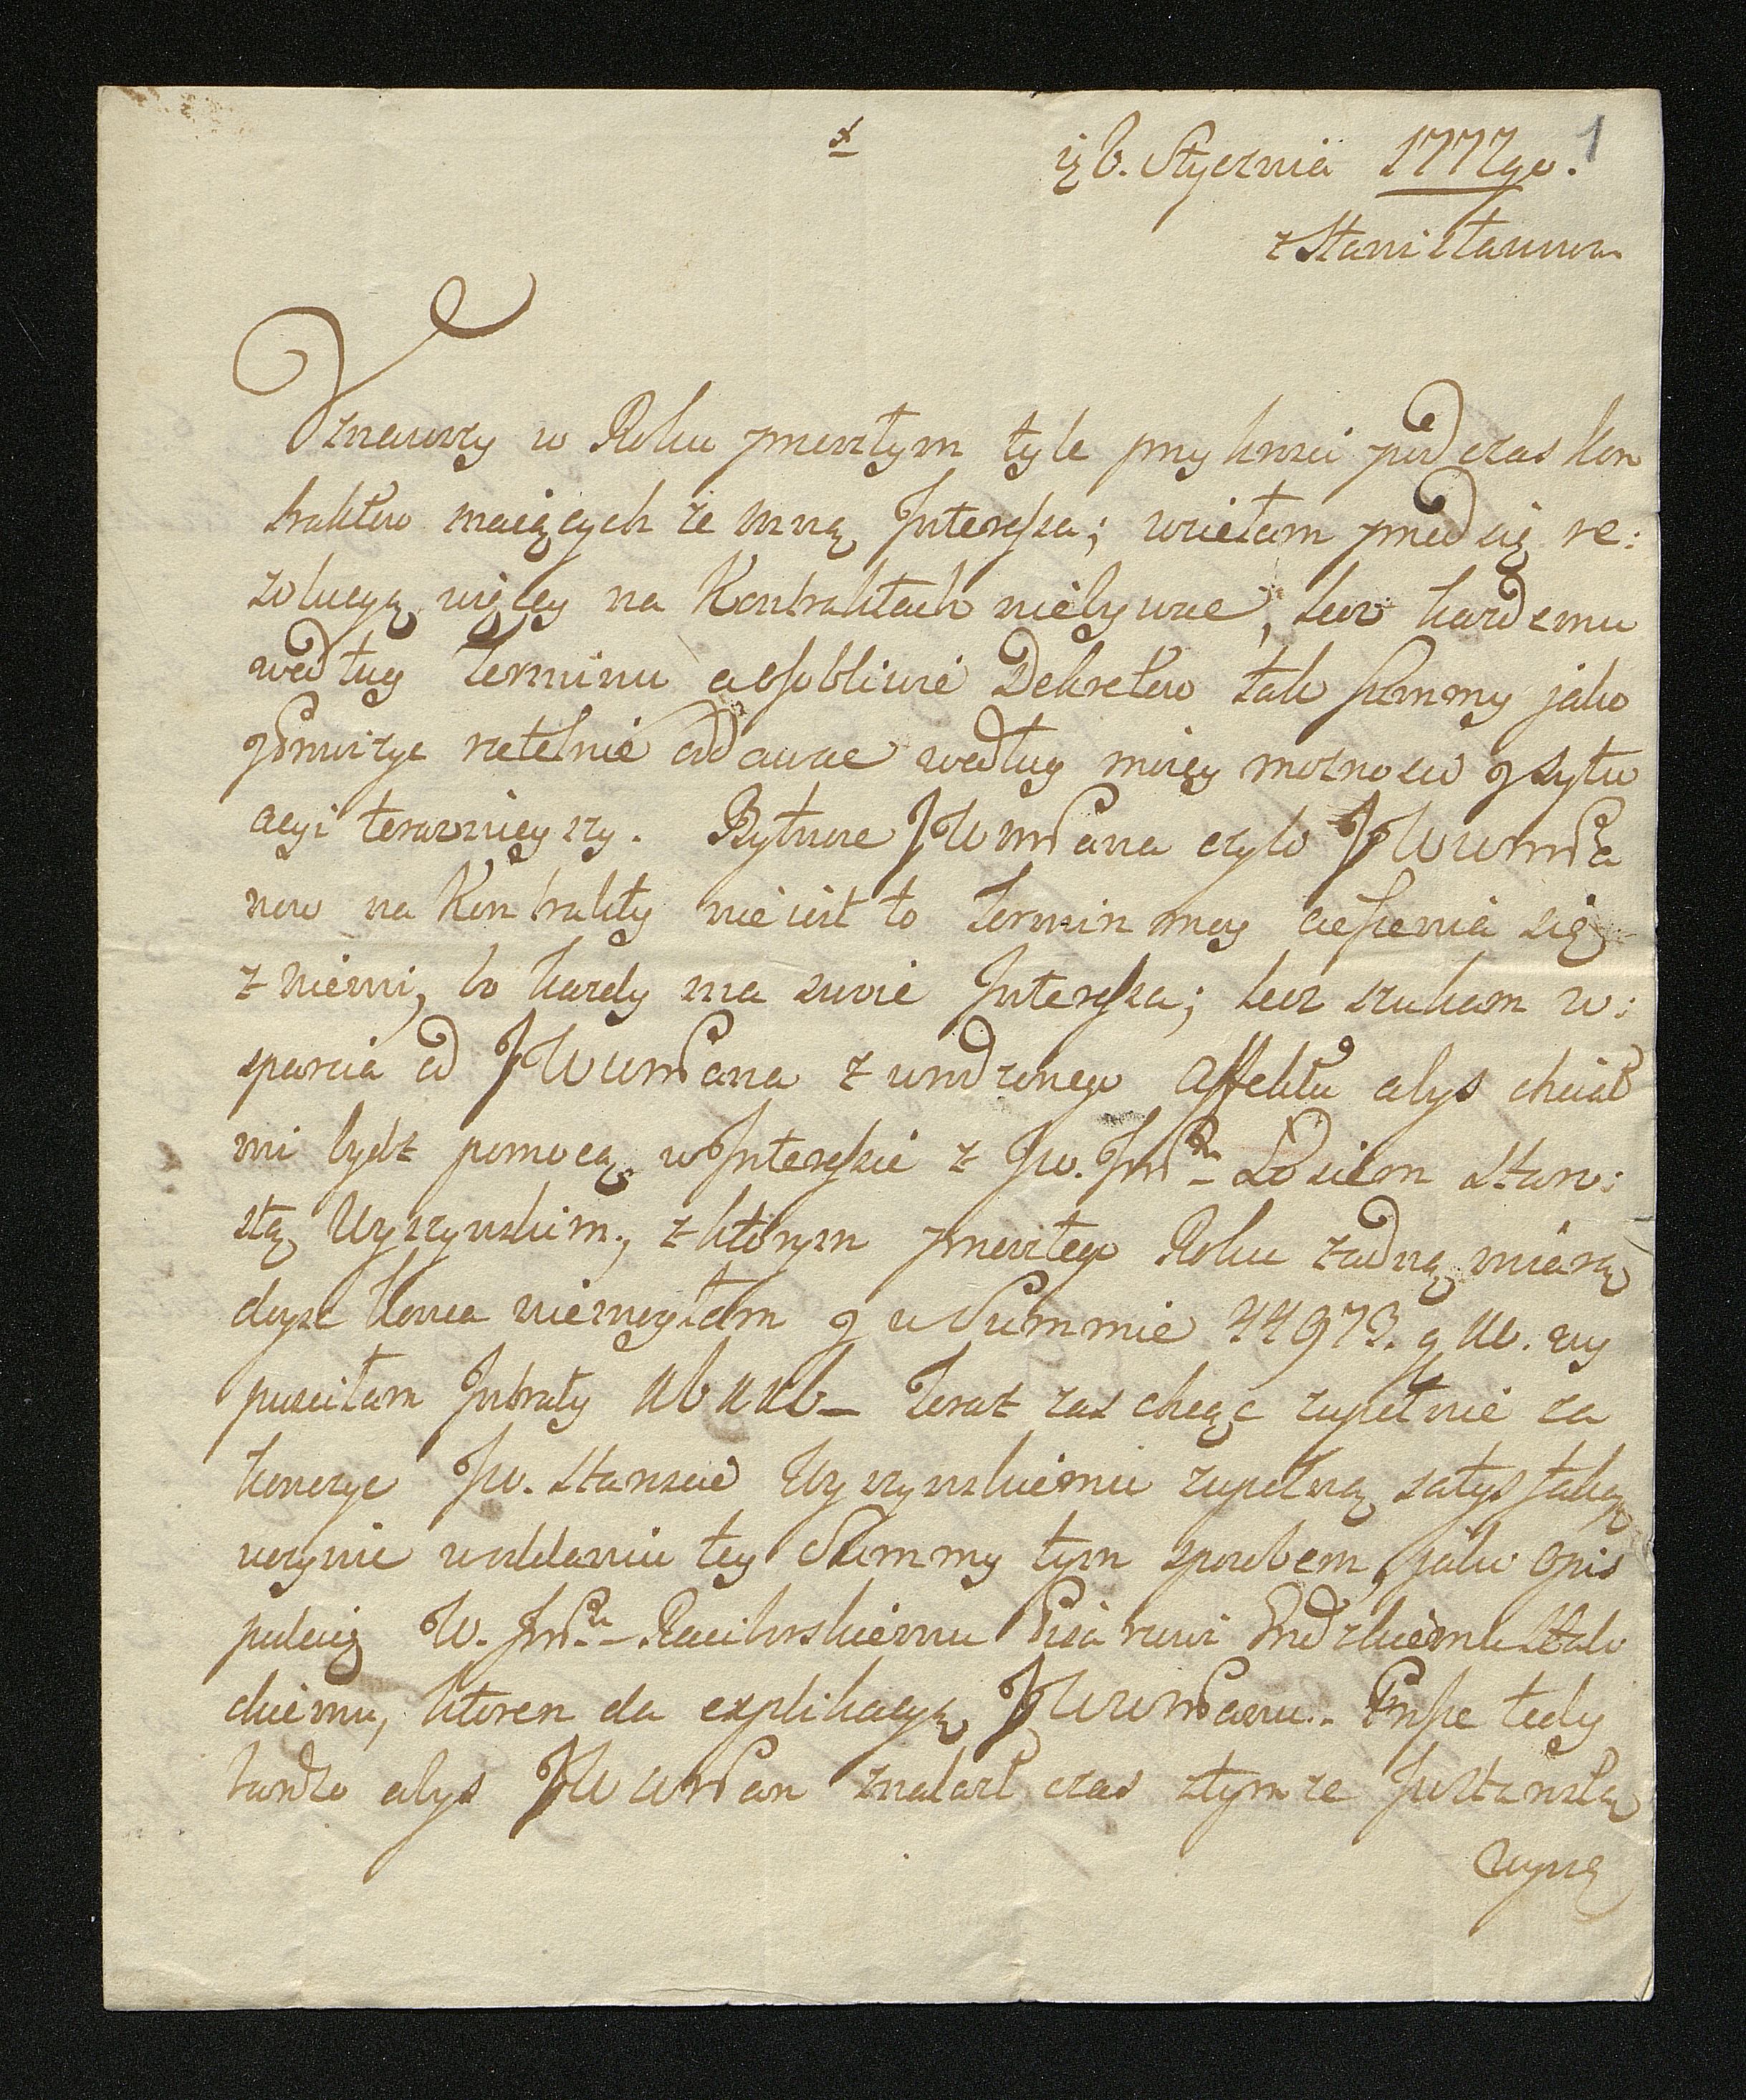 1
6. Stycznia 1777go.
z Stanisławowa
Uznawszy w Roku przeszłym tyle przykrosci podczas kon
traktow maiących ze mną Interessa; wziełam przed się re:
zolucyą więcey na Kontraktach niebywac, lecz kazdemu
według Terminu a osobliwie Dekretow tak Summy jako
y prowizye rzetelnie oddawac według moiey moznosci y sytu
acyi teraznieyszy. Bytnosc JWWMPana czyli JWWWMPa
now na Kontrakty nie iest to Termin moy cieszenia się
z niemi, bo kazdy ma swoie Interessa; lecz szukam w:
sparcia od JWWMPana z wrodzonego affektu abys chciał
mi bydz pomocą w Interessie z Jw. JmP. Łosiem Staro:
stą Wyszynskim, z ktorym przeszłego Roku zadną miarą
doysc konca niemogłam y w Summie 44973. g
pusciłam Intraty Teraz zas chcąc zupełnie za
konczyc Jw. Starscie Wyszynskiemu zupełną satysfakcyą
uczynie w oddaniu tey Summy tym sposobem, jako opis
polecię W. JmP. Raciborskiemu Pisarzowi Grodzkiemu Hali
ckiemu, ktoren da explikacyą JWWMPanu. Proszę tedy
bardzo abys JWWMPan znalazł czas z tymze Jw Starostą